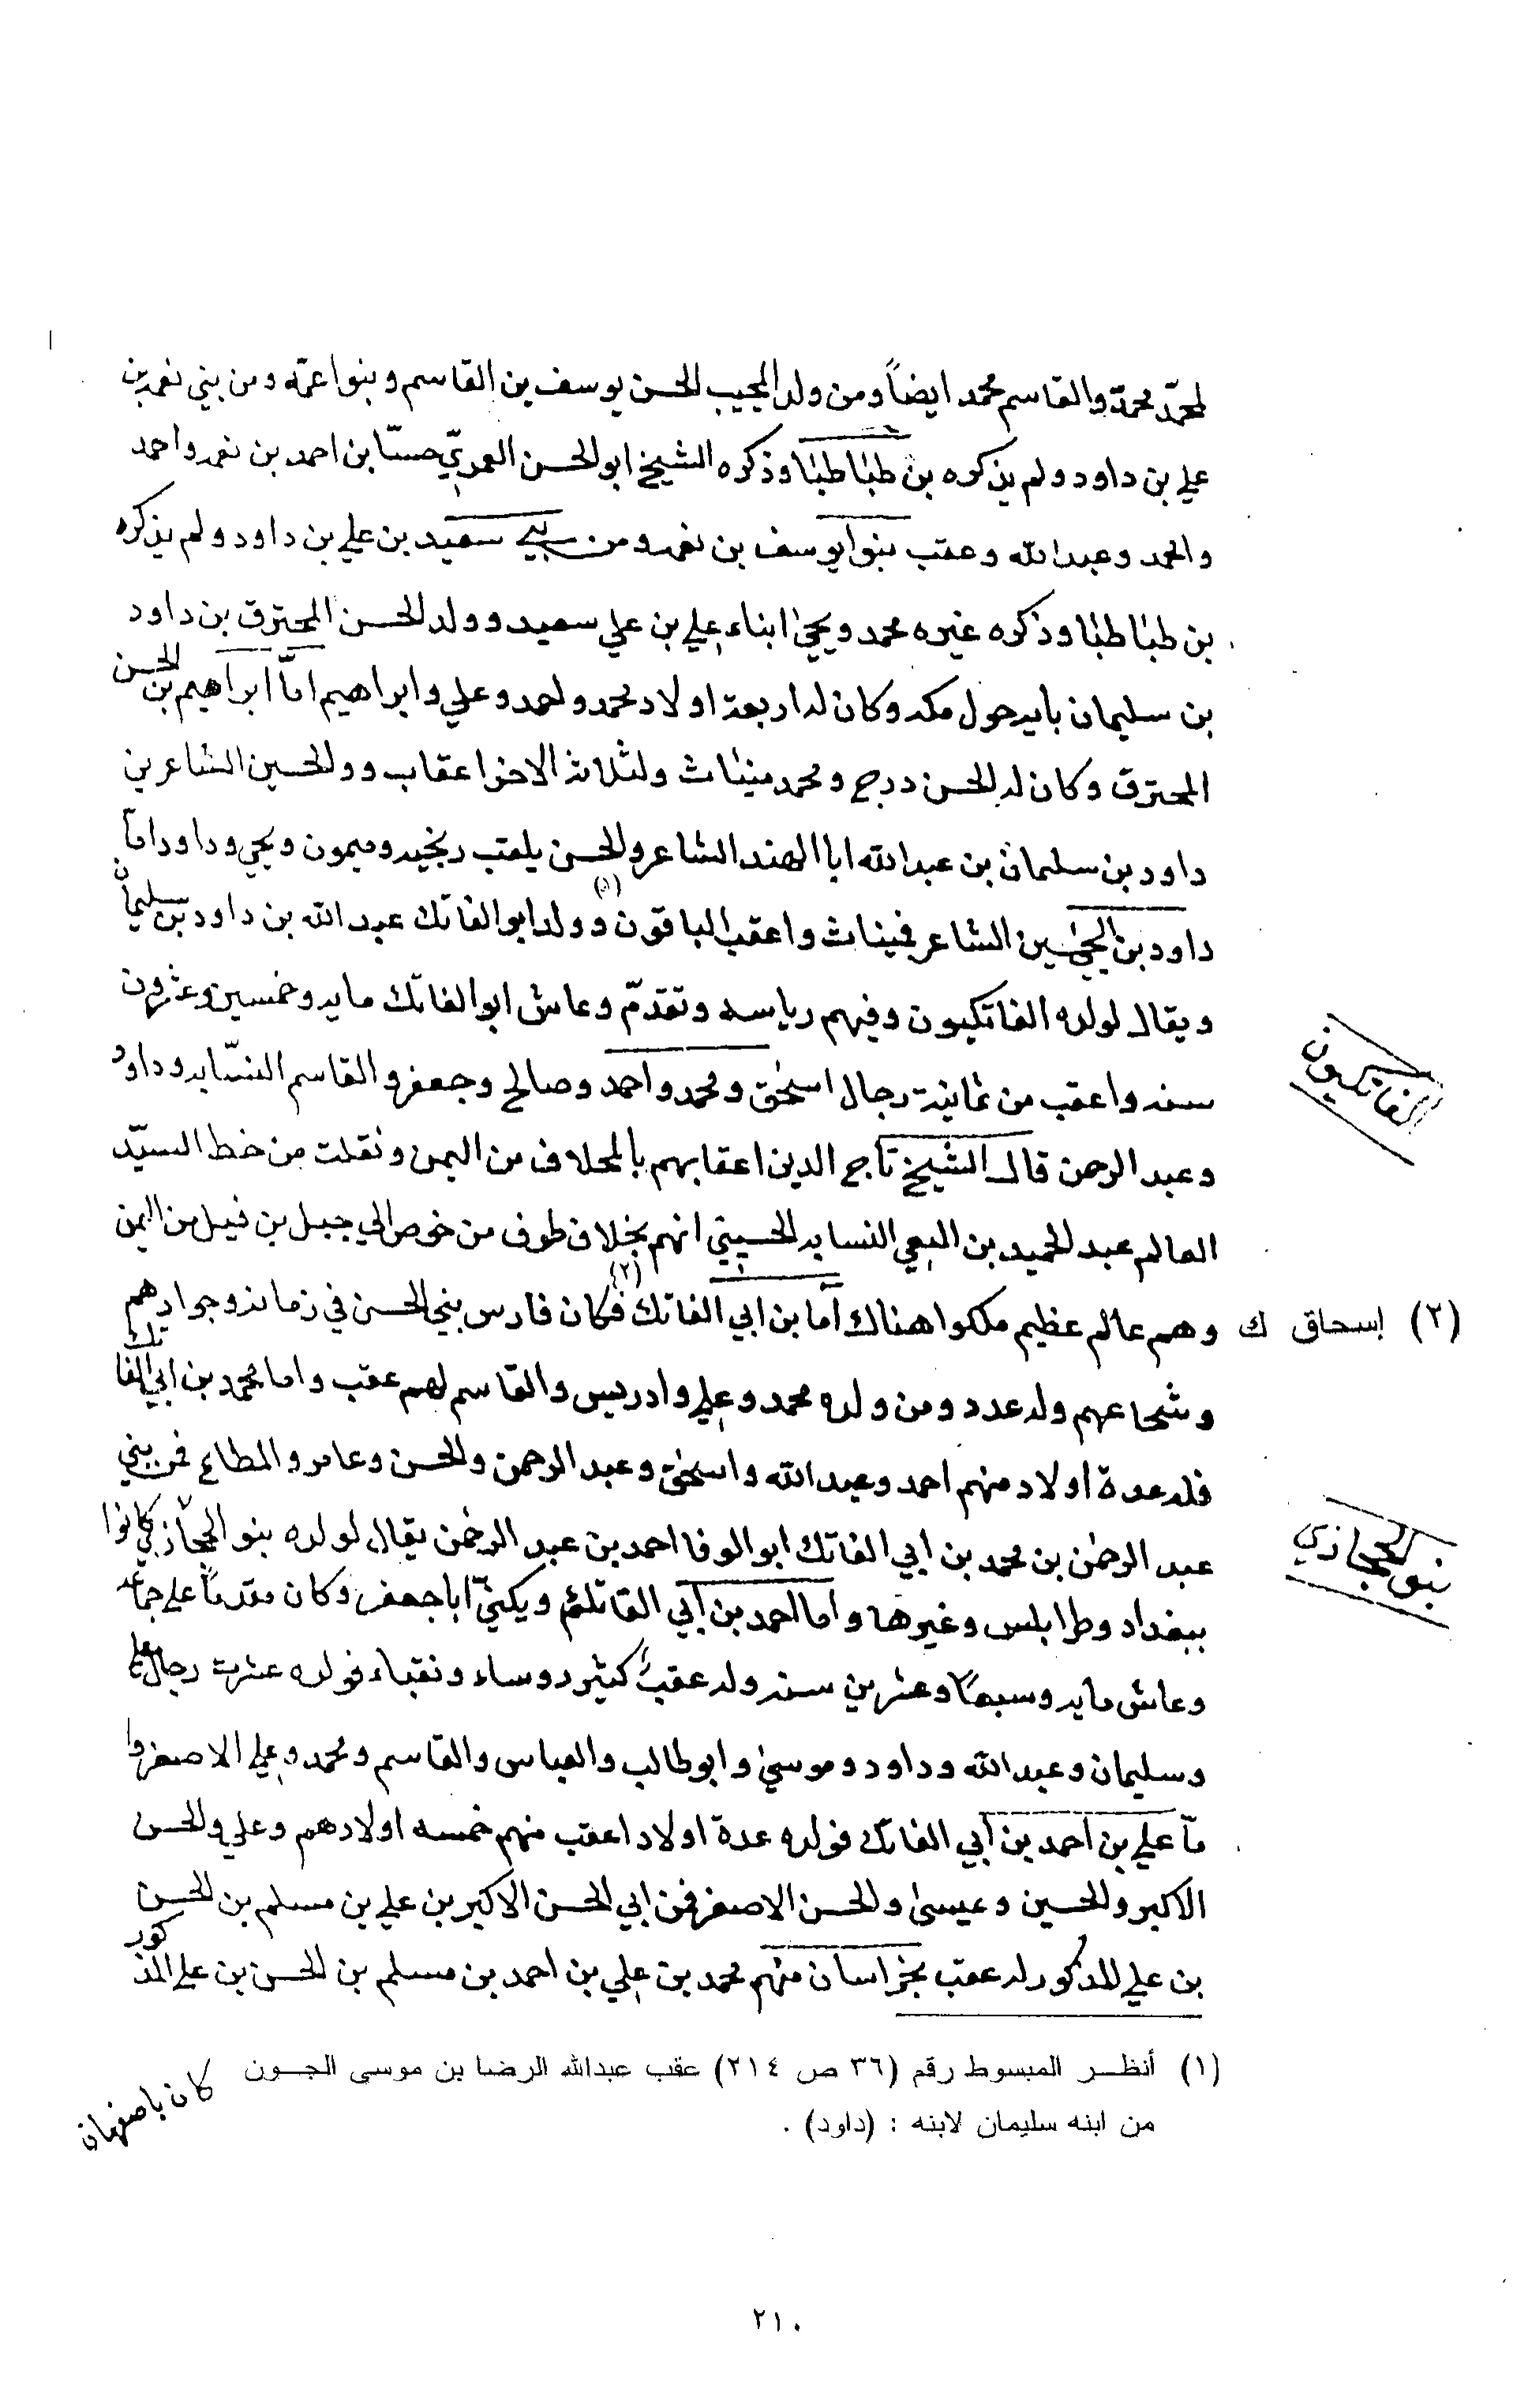 لمحمد محمد والقاسم محمد ايضاً ومن ولد المجيب الحسن يوسف بن القاسم وبنوا عمه ومن بني نعمه بن
علي بن داود ولم يذكره بن طباطبا وذكره الشيخ ابو الحسن العمري حسنا بن احمد بن نعمه واحمد
والحمد وعبد الله وعقب بنوا يوسف بن نعمه ومن بني سعيد بن علي بن داود ولم يذكره
بن طباطبا وذكره غيره محمد ويحيى ابناء علي بن علي سعيد وولد الحسن المحترق بن داود
بن سليمان بايه حول مكه وكان له اربعة اولاد محمد واحمد وعلي وابراهيم اما ابراهيم بن الحسن
المحترق وكان له الحسن درج ومحمد ميناث ولثلاثة الاخر اعقاب وولد الحسين الشاعر بن
داود بن سليمان بن عبد الله ابا الهند الشاعر والحسن يلقب وميمون ويحيى وداود اما
داود بن الحسين الشاعر فميناث واعقب الباقون (١) وولد ابو الفاتك عبد الله بن داود بن سليمان
ويقال لولده الفاتكيون وفيهم رياسه وتقدم وعاش ابو الفاتك مايه وخمسين وعشرون
سنه واعقب من ثمانية رجال اسحق ومحمد واحمد وصالح وجعفر والقاسم النسابه وداود
وعبد الرحمن قال الشيخ تاج الدين اعقابهم بالمخلاف من اليمن ونقلت من خط السيد
العالم عبد الحميد بن النسابه الحسيني انهم بمخلاف طرف من الي جبل بن من اليمن
(٢) إسحاق ك وهم عالم عظيم ملكوا هناك اما بن ابي الفاتك (٢) فكان فارس بني الحسن في زمانه وجوادهم
وشجاعهم وله عدد ومن ولده محمد وعلي وادريس والقاسم لهم عقب واما محمد بن ابي الفاتك
فله عدة اولاد منهم احمد وعبد الله واسحق وعبد الرحمن والحسن وعامر والمطاع فمن بني
عبد الرحمن بن محمد بن ابي الفاتك ابو الوفا احمد بن عبد الرحمن يقال لولده بنو الحجازي كانوا
ببغداد وطرابلس وغيرها واما احمد بن ابي الفاتك ويكنى ابا جعفر وكان مقدماً على جماعه
وعاش مايه وسبعا وعشرين سنه وله عقب كثير روساء ونقباء فولده عشرة رجال علي
وسليمان وعبد الله وداود وموسى وابو طالب والعباس والقاسم ومحمد وعلي الاصغر وا
ما علي بن احمد بن ابي الفاتك فولده عدة اولاد اعقب منهم خمسه اولادهم وعلي والحسن
الاكبر والحسين وعيسى والحسن الاصغر فمن ابي الحسن الاكبر بن علي بن مسلم بن الحسن
بن علي المذكور له عقب بخراسان منهم محمد بن علي بن احمد بن مسلم بن الحسن بن علي المذكور
كان باصفهان
الفاتكيون
بنو الحجازي
(١) أنظر المبسوط رقم (٣٦ ص ٢١٤) عقب عبدالله الرضا بن موسى الجون
من ابنه سليمان لابنه : (داود) .
٢١٠